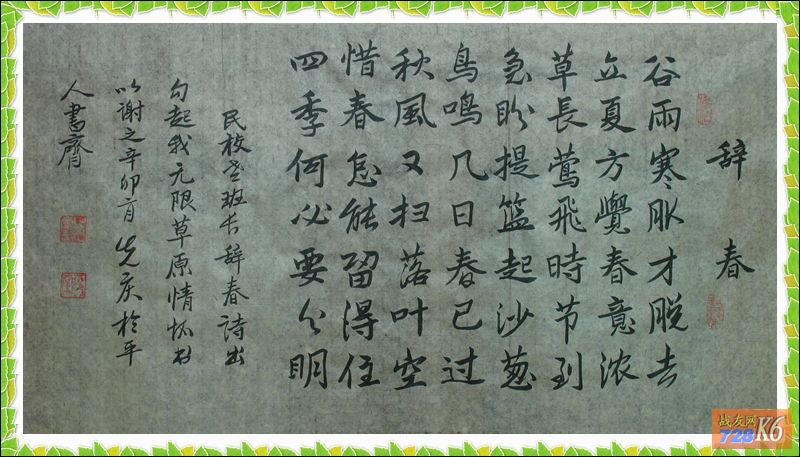 辞春
谷雨寒服才脱去
立夏方覺春意浓
草長莺飛時节到
急盼提篮起沙葱
鳥鳴几日春已过
秋風又扫落叶空
惜春怎能留得住
四季何必要分明
民族老班长辞春詩出
勾起我无限草原情怀书
以谢之辛卯先庆於平
人書齋
战友网
728 K6